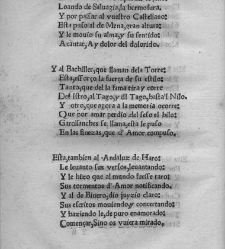 Loando de Saluagia, la hermosura,
Y por passar al vuestro Castellano:
Esta passo al de Mena, eran altura:
Y le mouio su alma, y su sentido:
A cantar, Ay dolor del dolorido.
Y al Bachiller, que llaman dela Torre:
Esta, esforço la fuerça de su estilo:
Tanto, que del la fama tira y corre
Del Istro, al Tago, y dl Tago, hasta'l Nilo.
Y otro, que agora a la memoria ocorre:
Que por amar perdio del seso el hilo:
Garcisanchez se llama, esta le puso
En las finezas, que d'Amor compuso.
Esta, tambien al Andaluz de Haro:
Le leuanto sus versos, leuantando:
Y le hizo que al mundo fuesse raro:
Sus tormentos d'Amor notificando.
Y al de Biuero, dio juyzio claro:
Sus escritos mouiendo, y concertando:
Y haziendo le, de puro enamorado:
Començar, Sino os vuiera mirado.